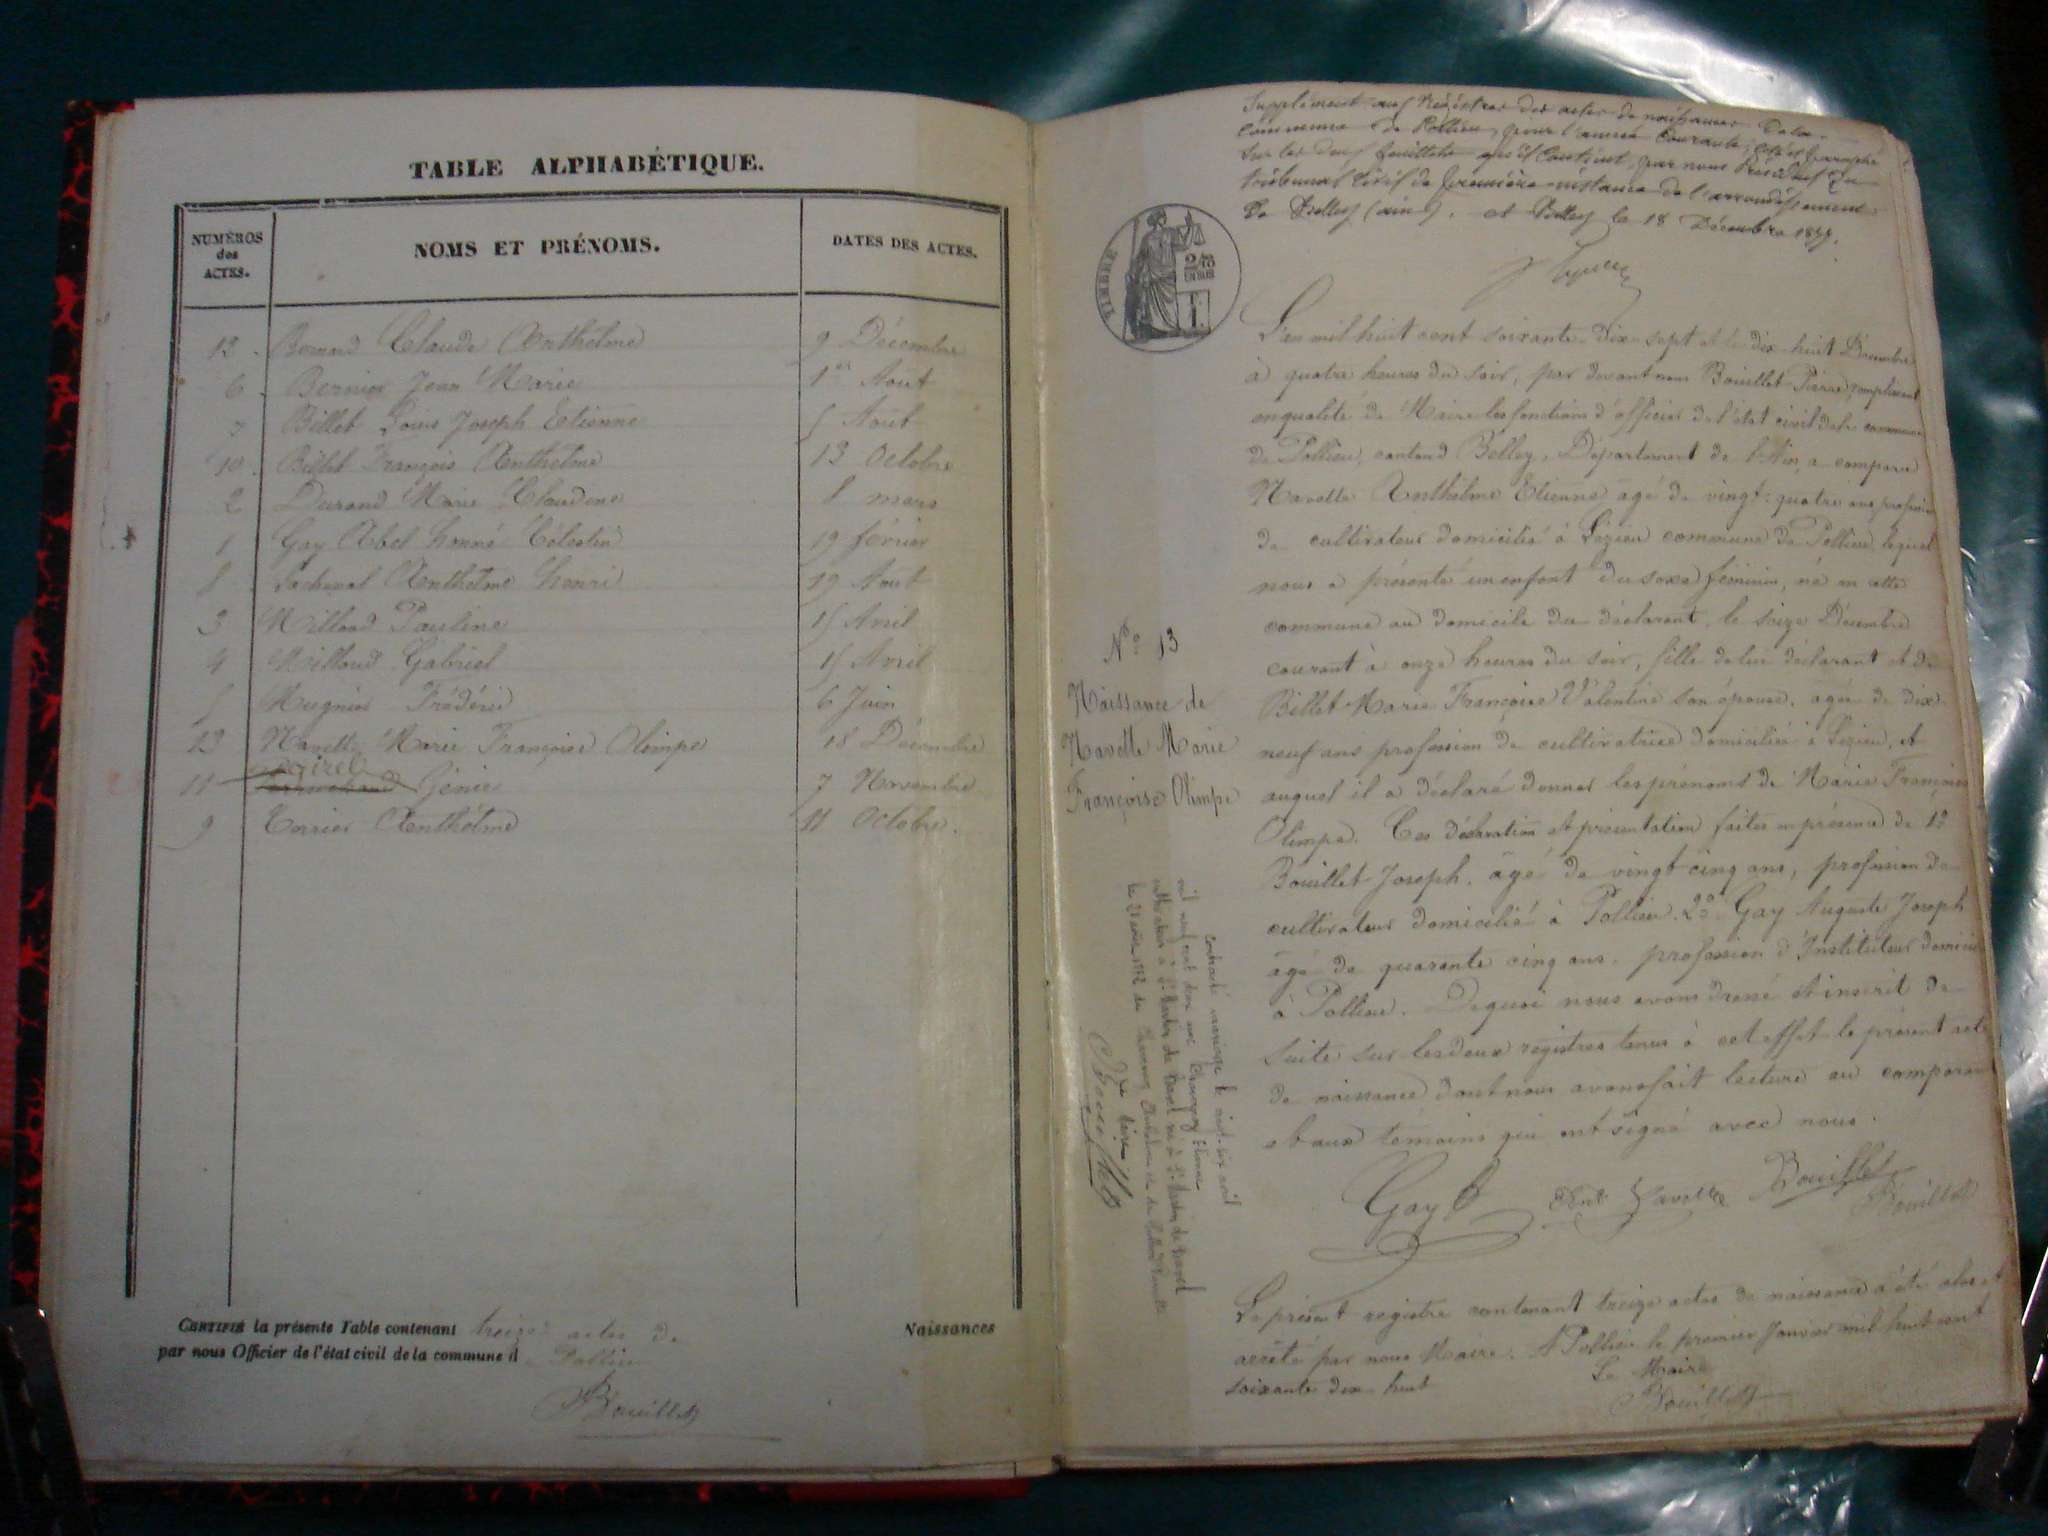 TABLE ALPHABÉTIQUE.
NUMÉROS des ACTES.
NOMS ET PRÉNOMS.
DATES DES ACTES.
12 Bernard Claude Anthelme 9 Décembre
6 Bernier Jean Marie 1er Aout
7 Billet Louis Joseph Etienne 5 Aout
10 Billet François Anthelme 13 Octobre
2 Durand Marie Claudine 8 mars
1 Gay Abel honoré Célestin 19 février
8 Anthelme henri 19 Aout
3 Milland Pauline 15 Avril
4 Milland Gabriel 15 Avril
5 Mugnier Frédéric 6 Juin
13 Navette Marie Françoise Olimpe 18 Décembre
11 Génie 7 Novembre
9 Terrier Anthelme 11 Octobre.
CERTIFIÉ la présente Table contenant treize actes de Naissances
par nous Officier de l'état civil de la commune d Pollieu
Bouillet
Supplément aux Régistres des actes de naissances De la
commune de Pollieu, pour l'année Courante, coté et paraphé
sur les deux feuillets qu'il Contient, par nous Président du
tribunal Civil de première instance de l'arrondissement
De Belley (ain). et Belley le 18 Décembre 1877.
TIMBRE
L'an mil huit cent soixante-dix-sept et le dix-huit Décembre
à quatre heures du soir, par devant nous Bouillet Pierre remplissant
en qualité de Maire les fonctions d'officier de l'état civil de la commune
de Pollieu, canton d Belley, Département de l'Ain, a comparu
Navette Anthelme Etienne âgé de vingt-quatre ans profession
de cultivateur domicilié à Lézieu commune de Pollieu lequel
nous a présenté un enfant du sexe féminin, né en cette
commune au domicile du déclarant, le seize Décembre
courant à onze heures du soir, fille de lui déclarant et de
Billet Marie Françoise Valentine son épouse, agée de dix-
neuf ans profession de cultivatrice domiciliée à Lézieu, et
auquel il a déclaré donner les prénoms de Marie Françoise
Olimpe. Ces déclaration et présentation faites en présence de 1º
Bouillet Joseph, âgé de vingt cinq ans, profession de
cultivateur domicilié à Pollieu. 2º Gay Auguste Joseph
âgé de quarante cinq ans, profession d'Instituteur domicilié
à Pollieu. De quoi nous avons dressé et inscrit de
suite sur les deux registres tenus à cet effet le présent acte
de naissance dont nous avons fait lecture au comparant
et aux témoins qui ont signé avec nous.
Gay Navette Bouillet
Bouillet
Nº 13
Naissance de
Navette Marie
Françoise Olimpe
contracté mariage le vingt-six avril
mil neuf cent douze avec Etienne
cultivateur à St Martin de Bavel né à St Martin de Bavel
Le Maire
Bouillet
Le présent registre contenant treize actes de naissance a été clos et
arrêté par nous Maire. A Pollieu le premier Janvier mil huit cent
soixante dix-huit
Le Maire
Bouillet